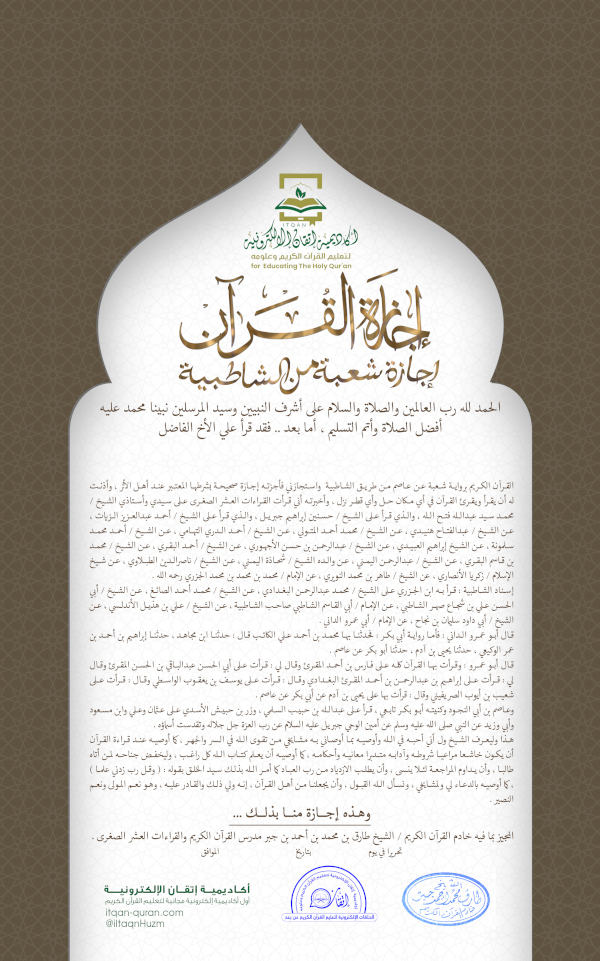 ITQAN
أكاديمية إتقان الإلكترونية
لتعليم القرآن الكريم وعلومه
for Educating The Holy Qur'an
إجازة القرآن
إجازة شعبة من الشاطبية
الحمد لله رب العالمين والصلاة والسلام على أشرف النبيين وسيد المرسلين نبينا محمد عليه
أفضل الصلاة وأتم التسليم ، أما بعد .. فقد قرأ علي الأخ الفاضل
القرآن الكريم برواية شعبة عن عاصم من طريق الشاطبية واستجازني فأجزته إجازة صحيحة بشرطها المعتبر عند أهل الأثر ، وأذنت
له أن يقرأ ويقرئ القرآن في أي مكان حل وأي قطر نزل ، وأخبرته أني قرأت القراءات العشر الصغرى على سيدي وأستاذي الشيخ /
محمد سيد عبدالله فتح الله ، والذي قرأ على الشيخ / حسنين إبراهيم جبريل ، والذي قرأ على الشيخ / أحمد عبدالعزيز الزيات ،
عن الشيخ / عبدالفتاح هنيدي ، عن الشيخ / محمد أحمد المتولي ، عن الشيخ / أحمد الدري التهامي ، عن الشيخ / أحمد محمد
سلمونة ، عن الشيخ إبراهيم العبيدي ، عن الشيخ / عبدالرحمن بن حسن الأجهوري ، عن الشيخ / أحمد البقري ، عن الشيخ / محمد
بن قاسم البقري ، عن الشيخ / عبدالرحمن اليمني ، عن والده الشيخ / شحاذة اليمني ، عن الشيخ / ناصرالدين الطبلاوي ، عن شيخ
الإسلام / زكريا الأنصاري ، عن الشيخ / طاهر بن محمد النويري ، عن الإمام / محمد بن محمد بن محمد الجزري رحمه الله .
إسناد الشاطبية : قرأ به ابن الجزري على الشيخ / محمد عبدالرحمن البغدادي ، عن الشيخ / محمد أحمد الصائغ ، عن الشيخ / أبي
الحسن علي بن شجاع صهر الشاطبي ، عن الإمام / أبي القاسم الشاطبي صاحب الشاطبية ، عن الشيخ / علي بن هذيل الأندلسي ، عن
الشيخ / أبي داود سليمان بن نجاح ، عن الإمام / أبي عمرو الداني .
قال أبو عمرو الداني : فأما رواية أبي بكر : فحدثنا بها محمد بن أحمد علي الكاتب قال : حدثنا ابن مجاهد ، حدثنا إبراهيم بن أحمد بن
عمر الوكيعي ، حدثنا يحيى بن آدم ، حدثنا أبو بكر عن عاصم .
قال أبو عمرو : وقرأت بها القرآن كله على فارس بن أحمد المقرئ وقال لي : قرأت على أبي الحسن عبدالباقي بن الحسن المقرئ وقال
لي : قرأت على إبراهيم بن عبدالرحمن بن أحمد المقرئ البغدادي وقال : قرأت على يوسف بن يعقوب الواسطي وقال : قرأت على
شعيب بن أيوب الصريفيني وقال : قرأت بها على يحيى بن آدم عن أبي بكر عن عاصم .
وعاصم بن أبي النجود وكنيته أبو بكر تابعي ، قرأ على عبدالله بن حبيب السلمي ، وزر بن حبيش الأسدي على عثمان وعلي وابن مسعود
وأبي وزيد عن النبي صلى الله عليه وسلم عن أمين الوحي جبريل عليه السلام عن رب العزة جل جلاله وتقدست أسماؤه .
هذا وليعرف الشيخ ول أني أحبه في الله وأوصيه بما أوصاني به مشايخي من تقوى الله في السر والجهر ، كما أوصيه عند قراءة القرآن
أن يكون خاشعا مراعيا شروطه وآدابه متدبرا معانيه وأحكامه ، كما أوصيه أن يعلم كتاب الله كل راغب ، وليخفض جناحه لمن أتاه
طالبا ، وأن يداوم المراجعة لئلا ينسى ، وأن يطلب الازدياد من رب العباد كما أمر الله بذلك سيد الخلق بقوله : ( وقل رب زدني علما )
، كما أوصيه بالدعاء لي ولمشايخي ، ونسأل الله القبول ، وأن يجعلنا من أهل القرآن ، إنه ولي ذلك والقادر عليه ، وهو نعم المولى ونعم
النصير .
وهذه إجازة منا بذلك ...
المجيز بما فيه خادم القرآن الكريم / الشيخ طارق بن محمد بن أحمد بن جبر مدرس القرآن الكريم والقراءات العشر الصغرى .
تحريرا في يوم بتاريخ الموافق
أكاديمية إتقان الإلكترونية
أول أكاديمية إلكترونية مجانية لتعليم القرآن الكريم
itqan-quran.com
@iltaqnHuzm
إتقان
الحلقات الإلكترونية لتعليم القرآن الكريم عن بعد